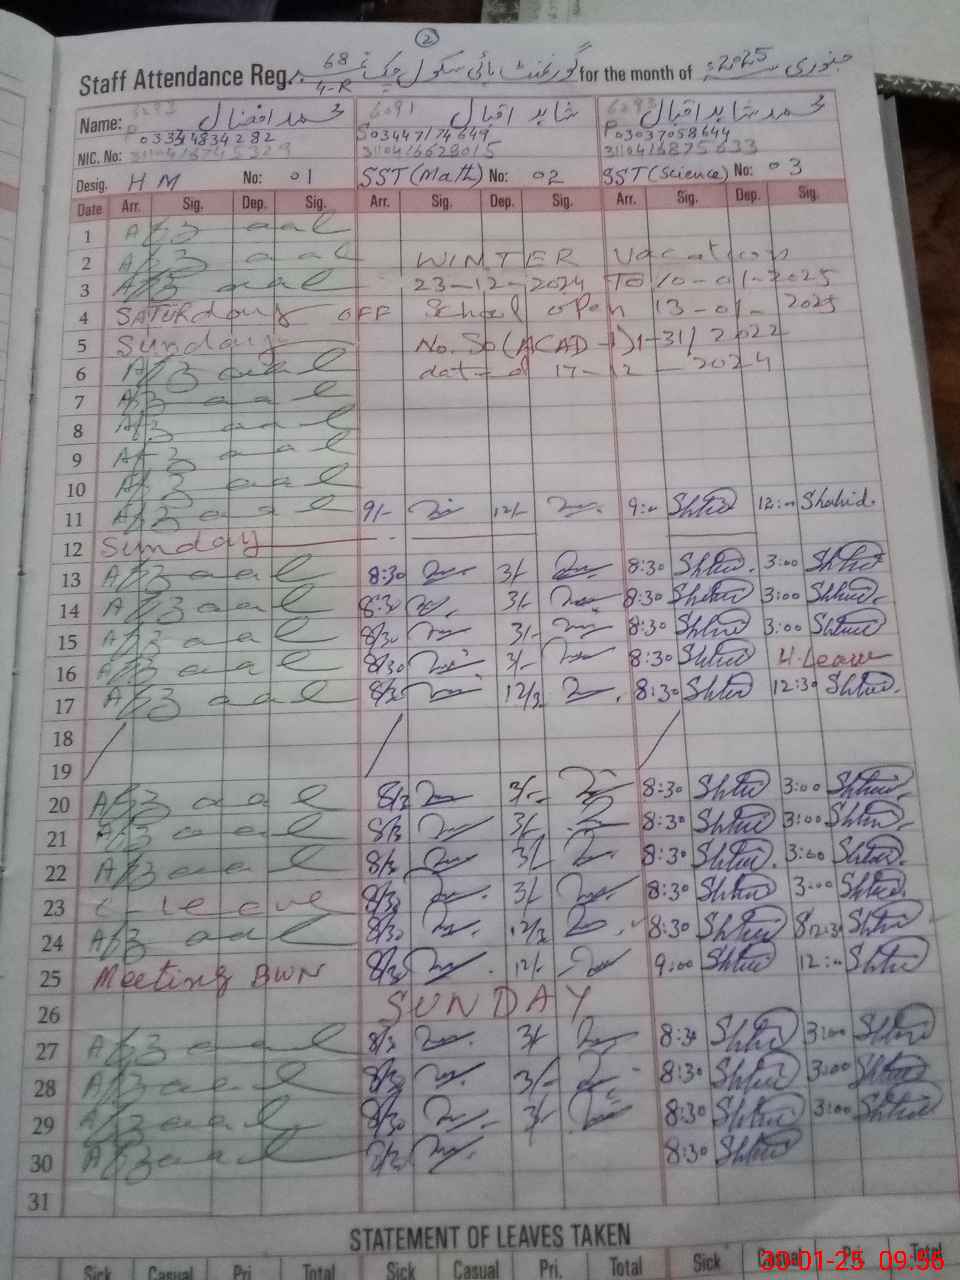 2
Staff Attendance Reg. گورنمنٹ ہائی سکول چک 68/4-R for the month of جنوری 2025
Name: محمد افضال شاہد اقبال محمد شاہد اقبال
03344834282 03447174649 03037058644
NIC. No:
Desig. HM No: 01 SST (Math) No: 02 SST (Science) No: 03
Date Arr. Sig. Dep. Sig. Arr. Sig. Dep. Sig. Arr. Sig. Dep. Sig.
1 Afzaal
2 Afzaal WINTER Vacation
3 Afzaal 23-12-2024 To 10-01-2025
4 SATURday OFF School open 13-01-2025
5 Sunday No. SO (ACAD-1) 1-31/2022
6 Afzaal dated 17-12-2024
7 Afzaal
8 Afzaal
9 Afzaal
10 Afzaal
11 Afzaal 9/- 12/- 9:00 Shahid 12:00 Shahid.
12 Sunday
13 Afzaal 8:30 3/- 8:30 Shahid 3:00 Shahid
14 Afzaal 8:30 3/- 8:30 Shahid 3:00 Shahid
15 Afzaal 8/30 3/- 8:30 Shahid 3:00 Shahid
16 Afzaal 8/30 3/- 8:30 Shahid H. Leave
17 Afzaal 8/30 12/30 8:30 Shahid 12:30 Shahid
18
19
20 Afzaal 8/30 3/- 8:30 Shahid 3:00 Shahid
21 Afzaal 8/30 3/- 8:30 Shahid 3:00 Shahid
22 Afzaal 8/30 3/- 8:30 Shahid 3:00 Shahid
23 C-leave 8/30 3/- 8:30 Shahid 3:00 Shahid
24 Afzaal 8/30 12/30 8:30 Shahid 12:30 Shahid
25 Meeting BWN 8/30 12/- 9:00 Shahid 12:00 Shahid
26 SUNDAY
27 Afzaal 8/30 3/- 8:30 Shahid 3:00 Shahid
28 Afzaal 8/30 3/- 8:30 Shahid 3:00 Shahid
29 Afzaal 8/30 3/- 8:30 Shahid 3:00 Shahid
30 Afzaal 8:30 Shahid
31
STATEMENT OF LEAVES TAKEN
Sick Casual Pri. Total Sick Casual Pri. Total Sick Casual Pri. Total
30-01-25 09:56